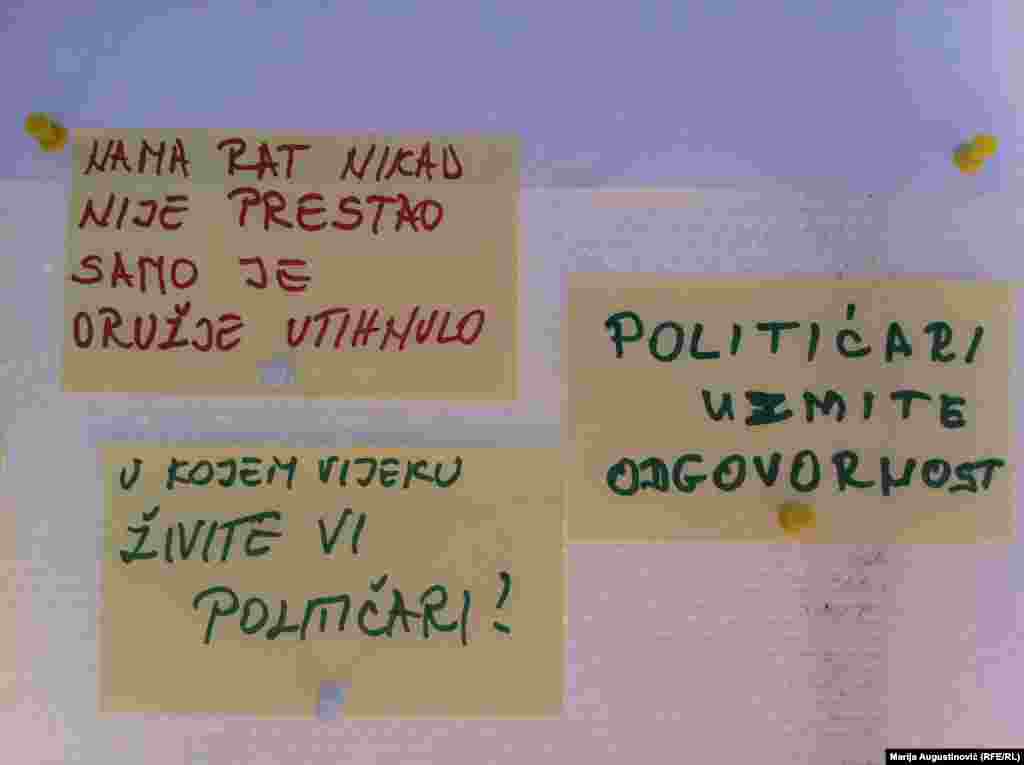 NAMA RAT NIKAD
NIJE PRESTAO
SAMO JE
ORUŽJE UTIHNULO
POLITIĆARI
UZMITE
ODGOVORNOST
U KOJEM VIJEKU
ŽIVITE VI
POLITIČARI!
Marija Augustinović (RFE/RL)